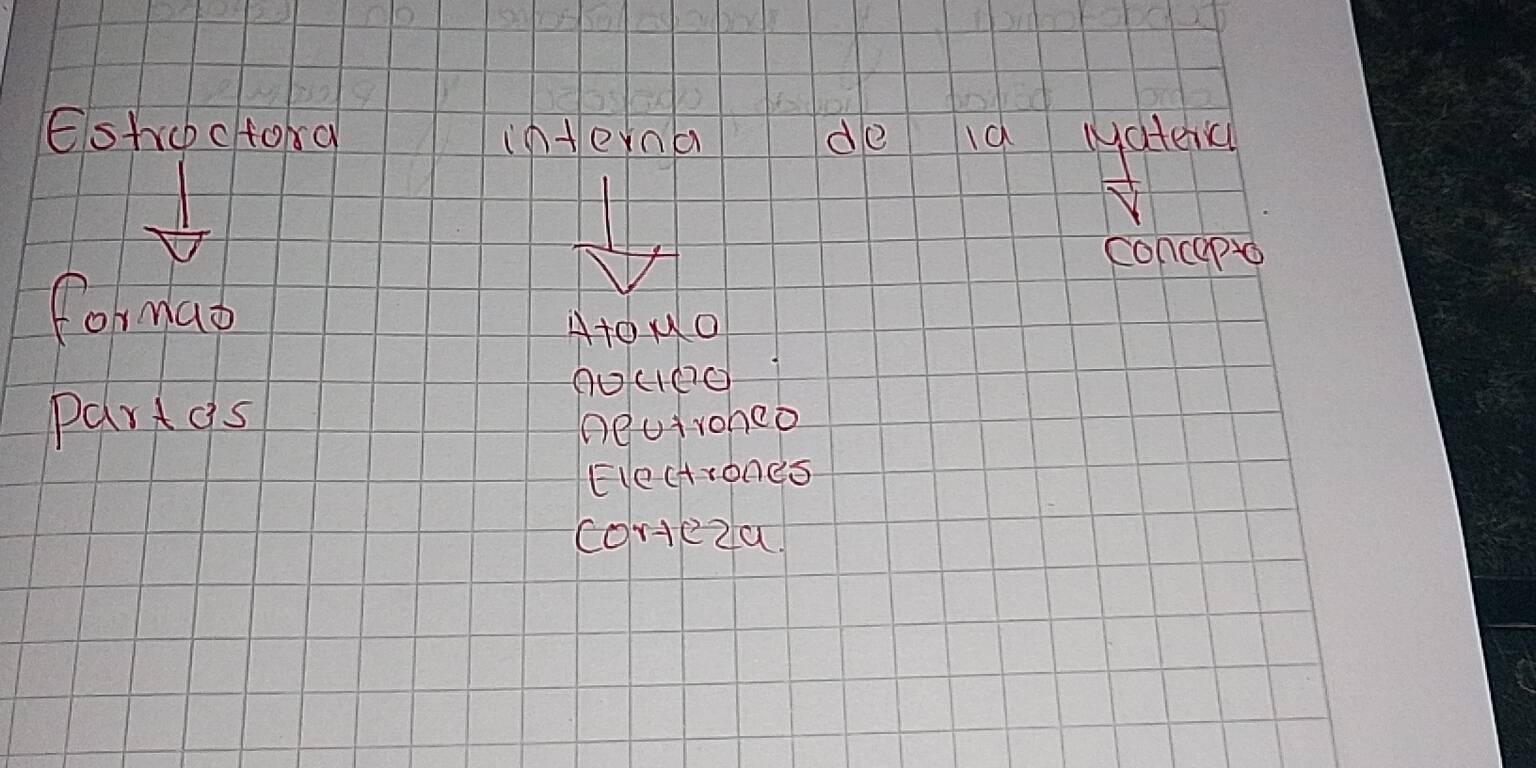 Estructura interna de la Materia
concepto
formas
Partes
Atomo
nucleo
neutrones
Electrones
corteza.